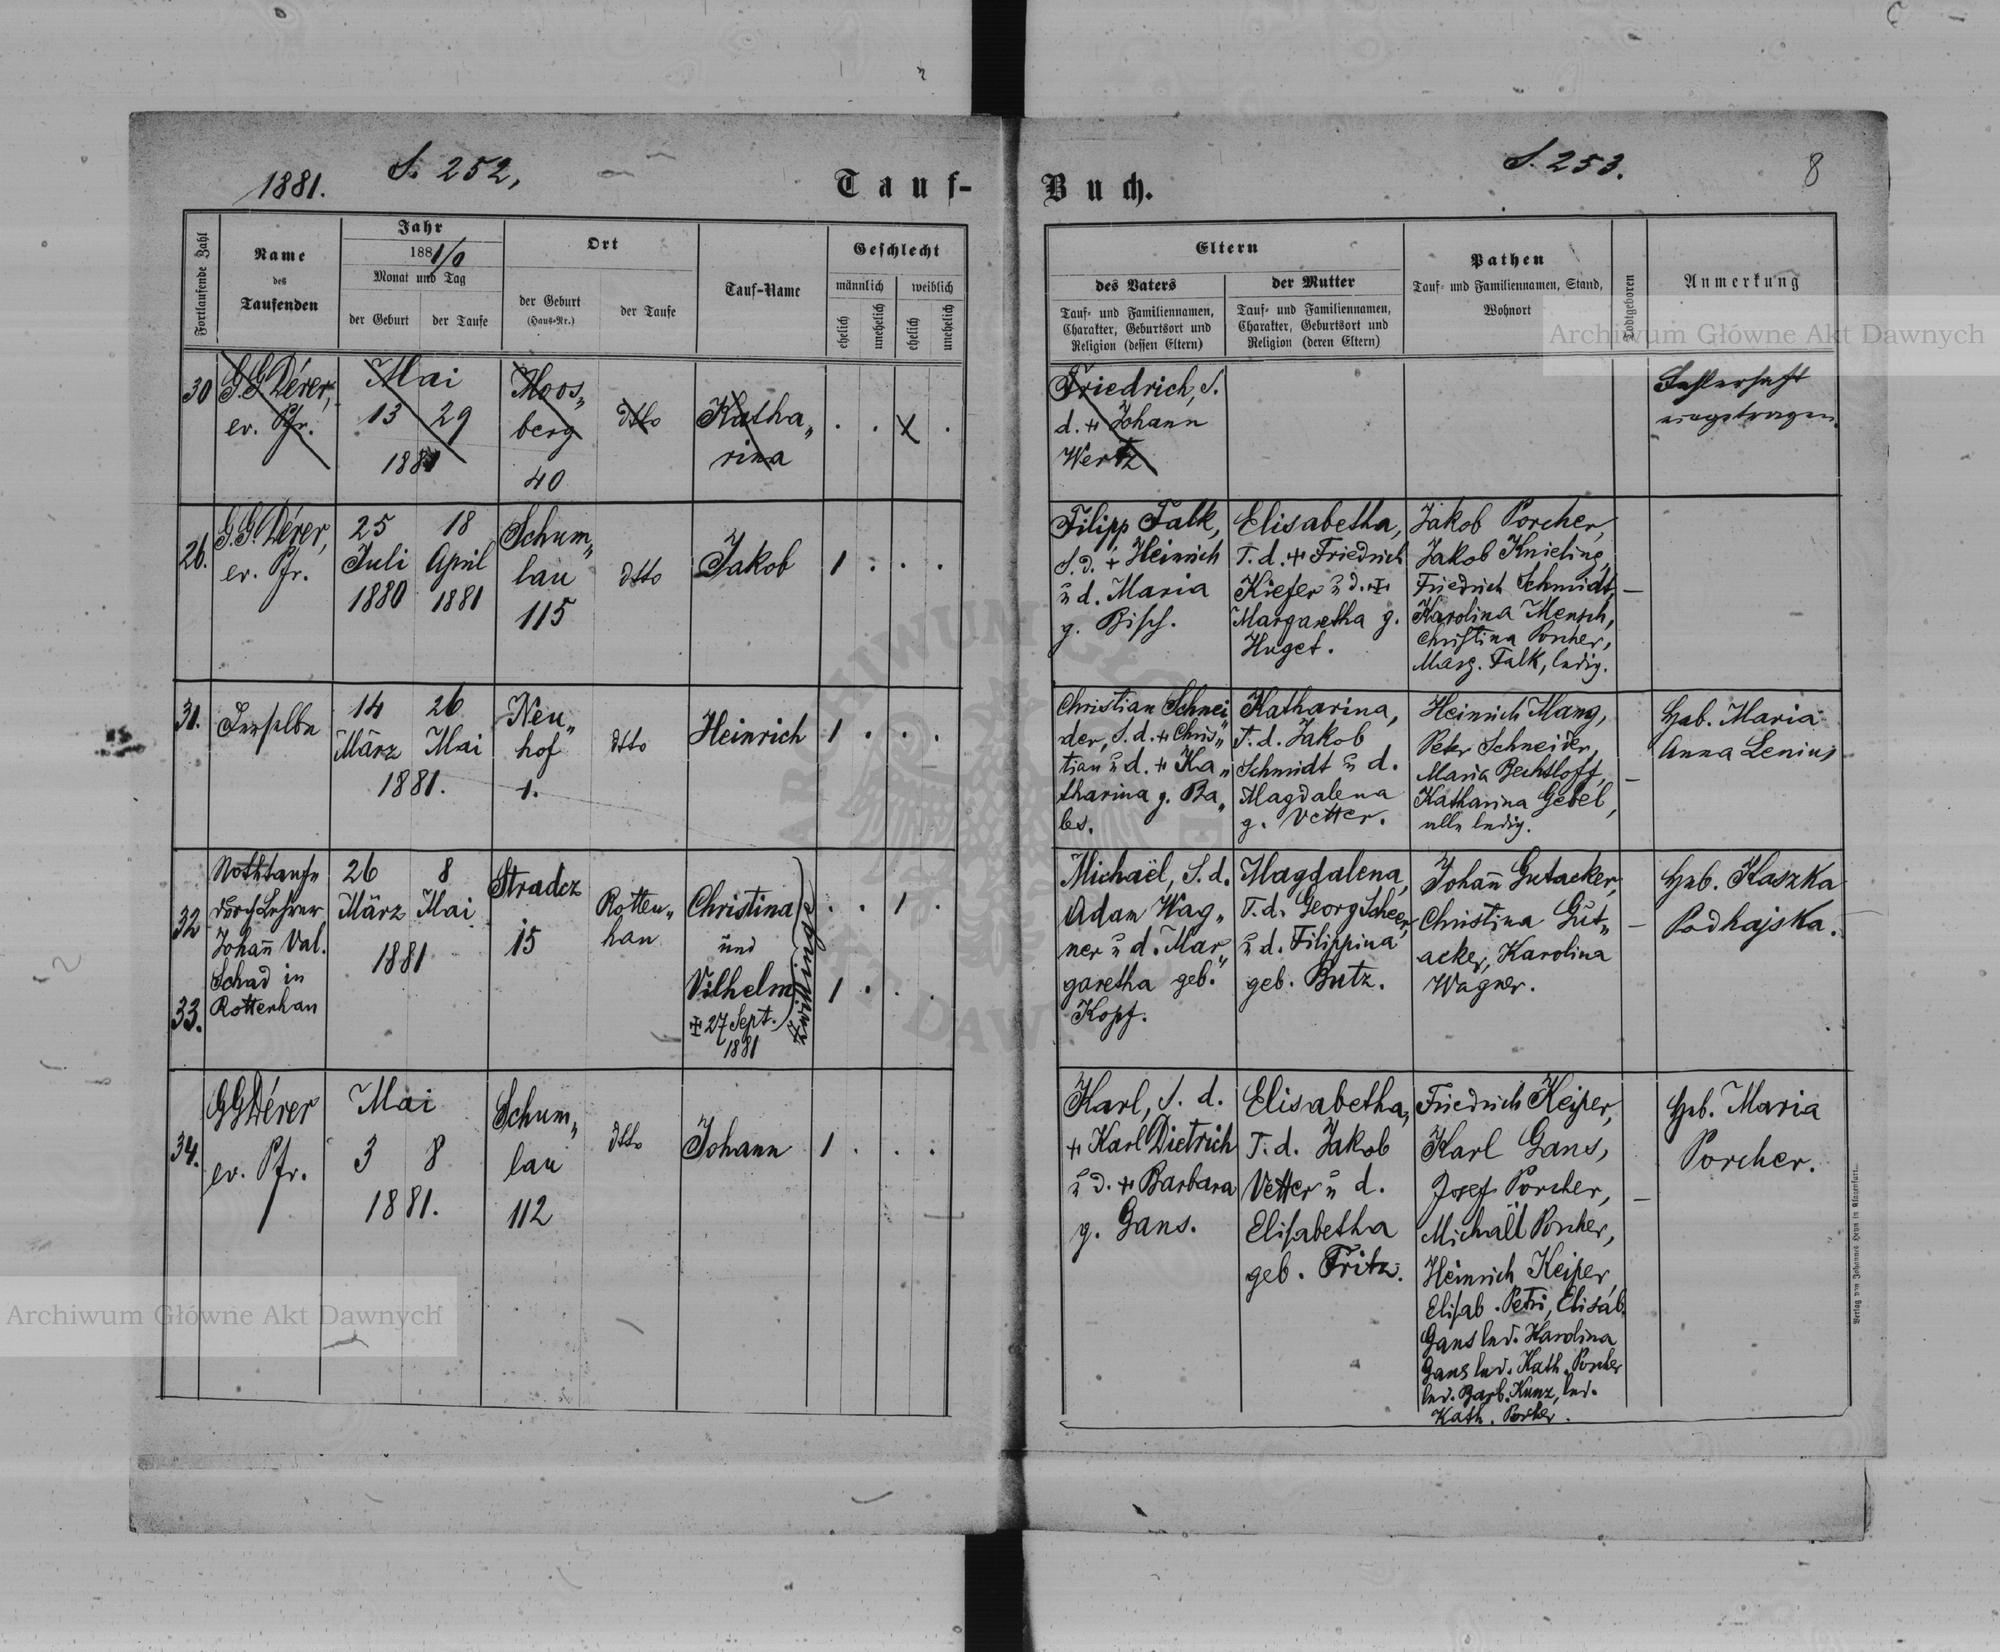 1881.
S. 252,
Tauf-
Fortlaufende Zahl
Name
des
Taufenden
Jahr
1881/0
Monat und Tag
der Geburt
der Taufe
Ort
der Geburt
(Haus-Nr.)
der Taufe
Tauf-Name
Geschlecht
männlich
weiblich
ehelich
unehelich
ehelich
unehelich
30
G. G. Dérer,
ev. Pfr.
Mai
13 29
1881
Moos„
berg
40
dtto
Katha„
rina
26.
G. G. Dérer,
ev. Pfr.
25 18
Juli April
1880 1881
Schum„
lau
115
dtto
Jakob
1
31.
Derselbe
14 26
März Mai
1881.
Neu„
hof
1.
dtto
Heinrich
1
32
33.
Nothtaufe
durch Lehrer
Johañ Val.
Schad in
Rottenhan
26 8
März Mai
1881
Stradcz
15
Rotten„
han
Christina
und
Vilhelm
Zwillinge
27 Sept.
1881
1
1
34.
G G Dérer
ev. Pfr.
Mai
3 8
1881.
Schum„
lau
112
dtto
Johann
1
S. 253.
8
Buch.
Eltern
des Vaters
Tauf- und Familiennamen,
Charakter, Geburtsort und
Religion (dessen Eltern)
der Mutter
Tauf- und Familiennamen,
Charakter, Geburtsort und
Religion (deren Eltern)
Pathen
Tauf- und Familiennamen, Stand,
Wohnort
Todtgeboren
Anmerkung
Friedrich, S.
d. + Johann
Wertz
Fehlerhaft
eingetragen.
Filipp Falk,
S. d. + Heinrich
u d. Maria
g. Bisch.
Elisabetha,
T. d. + Friedrich
Kiefer u d. +
Margaretha g.
Huget.
Jakob Porcher,
Jakob Knieling,
Friedrich Schmidt,
Karolina Mensch,
Christina Porcher,
Marg. Falk, ledig.
Christian Schnei„
der, S. d. + Chris„
tian u d. + Ka„
tharina g. Ba„
les.
Katharina,
T. d. Jakob
Schmidt u d.
Magdalena
g. Vetter.
Heinrich Mang,
Peter Schneider,
Maria Bechtloff,
Katharina Gebel,
alle ledig.
Heb. Maria
Anna Lenius
Michaël, S. d.
Adam Wag„
ner u d. Mar„
garetha geb.
Kopf.
Magdalena,
T. d. Georg Scheer,
u d. Filippina
geb. Butz.
Johañ Gutacker,
Christina Gut„
acker, Karolina
Wagner.
Heb. Kaszka
Podhajska.
Karl, S. d.
+ Karl Dietrich
u d. + Barbara
g. Gans.
Elisabetha,
T. d. Jakob
Vetter u d.
Elisabetha
geb. Fritz.
Friedrich Keiper,
Karl Gans,
Josef Porcher,
Michäel Porcher,
Heinrich Keiper,
Elisab. Petri, Elisab.
Gans led. Karolina
Gans led. Kath. Porcher
led. Barb. Kunz, led.
Kath. Porcher.
Heb. Maria
Porcher.
Verlag von Johannes Heyn in Klagenfurt.
Archiwum Główne Akt Dawnych
Archiwum Główne Akt Dawnych